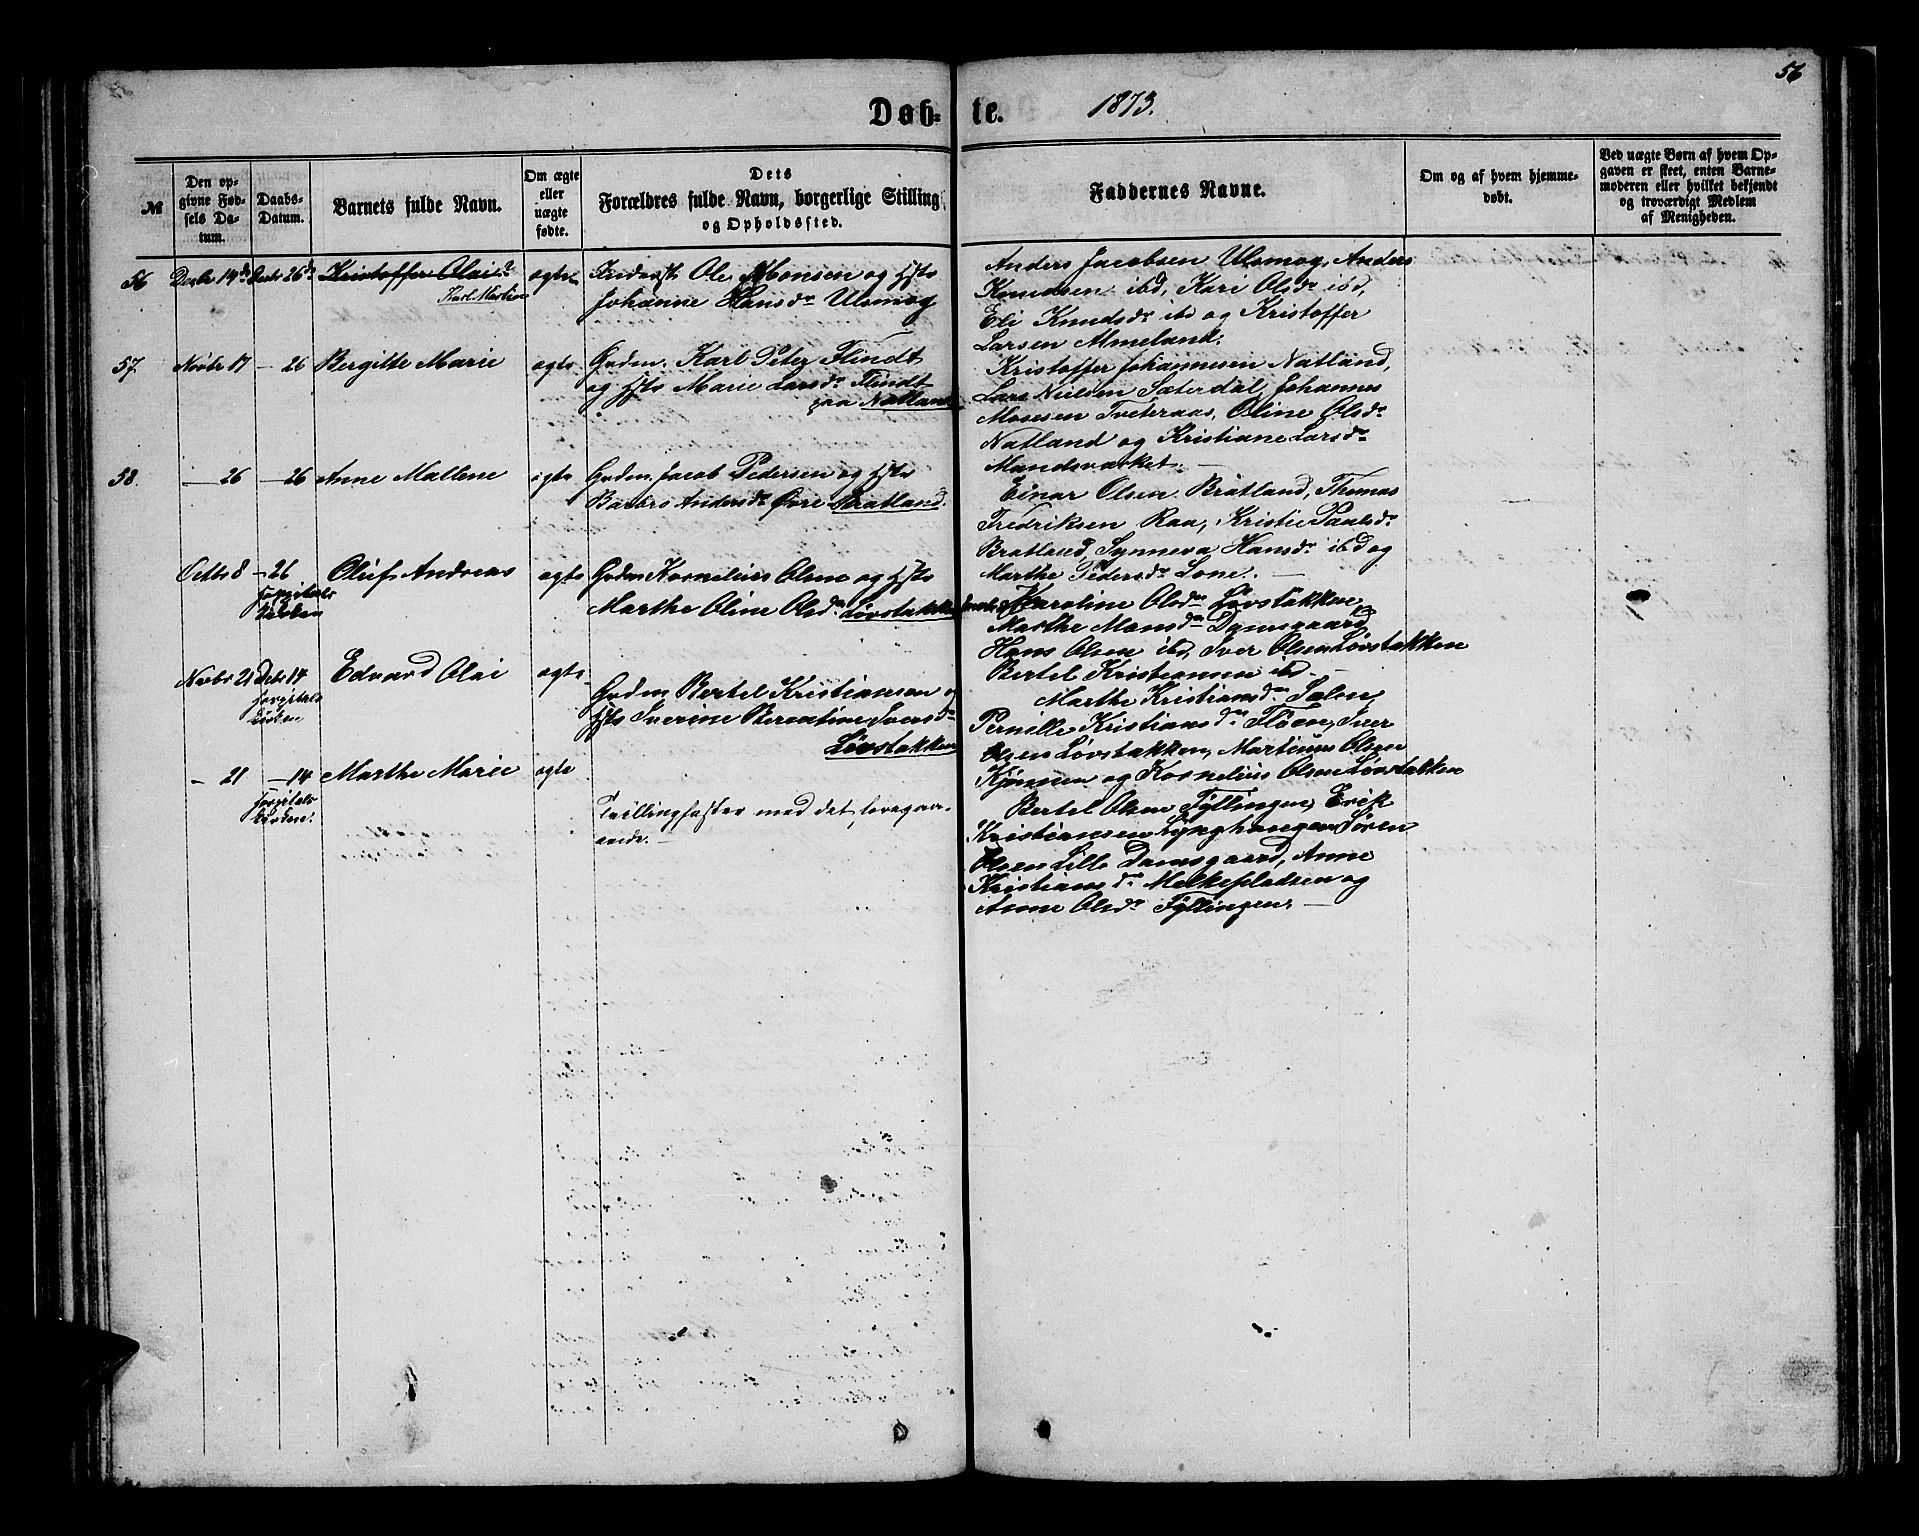 56
Døb- te. 1873.
№
Den op-
givne Fød-
sels Da-
tum.
Daabs-
Datum.
Barnets fulde Navn.
Om ægte
eller
uægte
fødte.
Dets
Forældres fulde Navn, borgerlige Stilling
og Opholdssted.
Faddernes Navne.
Om og af hvem hjemme-
døbt.
Ved uægte Børn af hvem Op-
gaven er skeet, enten Barne-
moderen eller hvilket bekjendt
og troværdigt Medlem
af Menigheden.
56 Decbr 14de Decbr 26de Kristoffer Olai
Karl Martin
ægte
Inderst Ole Monsen og Hst
Johanne Hansdr Ulsmog
Anders Jacobsen Ulsmog, Anders
Knudsen ibd, Kari Olsdr ibd,
Eli Knudsdr ibd og Kristoffer
Larsen Almeland.
57. Novbr 17 — 26 Bergitte Marie ægte
Grdm. Karl Peter Flindt
og Hst Marie Larsdr Flindt
paa Natland
Kristoffer Johannesen Natland,
Lars Nielsen Sæterdal, Johannes
Monsen Tveteraas, Oline Olsdr
Natland og Kristiane Larsdr
Mandsværket. —
58. — 26 — 26 Anne Mallene ægte
Grdm. Jacob Pedersen og Hst
Barbro Andersdr Øvre Bratland.
Einar Olsen Bratland, Thomas
Fredriksen Raa, Kristie Paulsdr
Bratland, Synneva Hansdr ibd og
Marthe Pedersdr Lone. —
Octbr 8 — 26 Oluf Andreas ægte
Hospitals
kirken
Grdm Kornelius Olsen og Hst
Marthe Oline Olsdr Løvstakken
Karoline Olsdr Løvstakken
Marthe Monsdr Damsgaard
Hans Olsen ibd, Iver Olsen Løvstakken
Bertel Kristiansen ibd. —
Novbr 21 Debr 14 Edvard Olai ægte
Hospitals
kirken
Grdm Bertel Kristiansen og
Hst Iverine Berentine Iversdr
Løvstakken
Marthe Kristiansdr Sælen
Pernille Kristiansdr Fløen, Iver
Olsen Løvstakken, Martinus Olsen
og Kornelius Olsen Løvstakken
— 21 — 14 Marthe Marie ægte
Hospitals
kirken.
Tvillingsøster med det foregaa-
ende. —
Bertel Olsen Fyllingen, Erik
Kristiansen Lynghaugen, Søren
Olsen Lille Damsgaard, Anne
Kristiansdr Melkepladsen og
Anne Olsdr Fyllingen. —